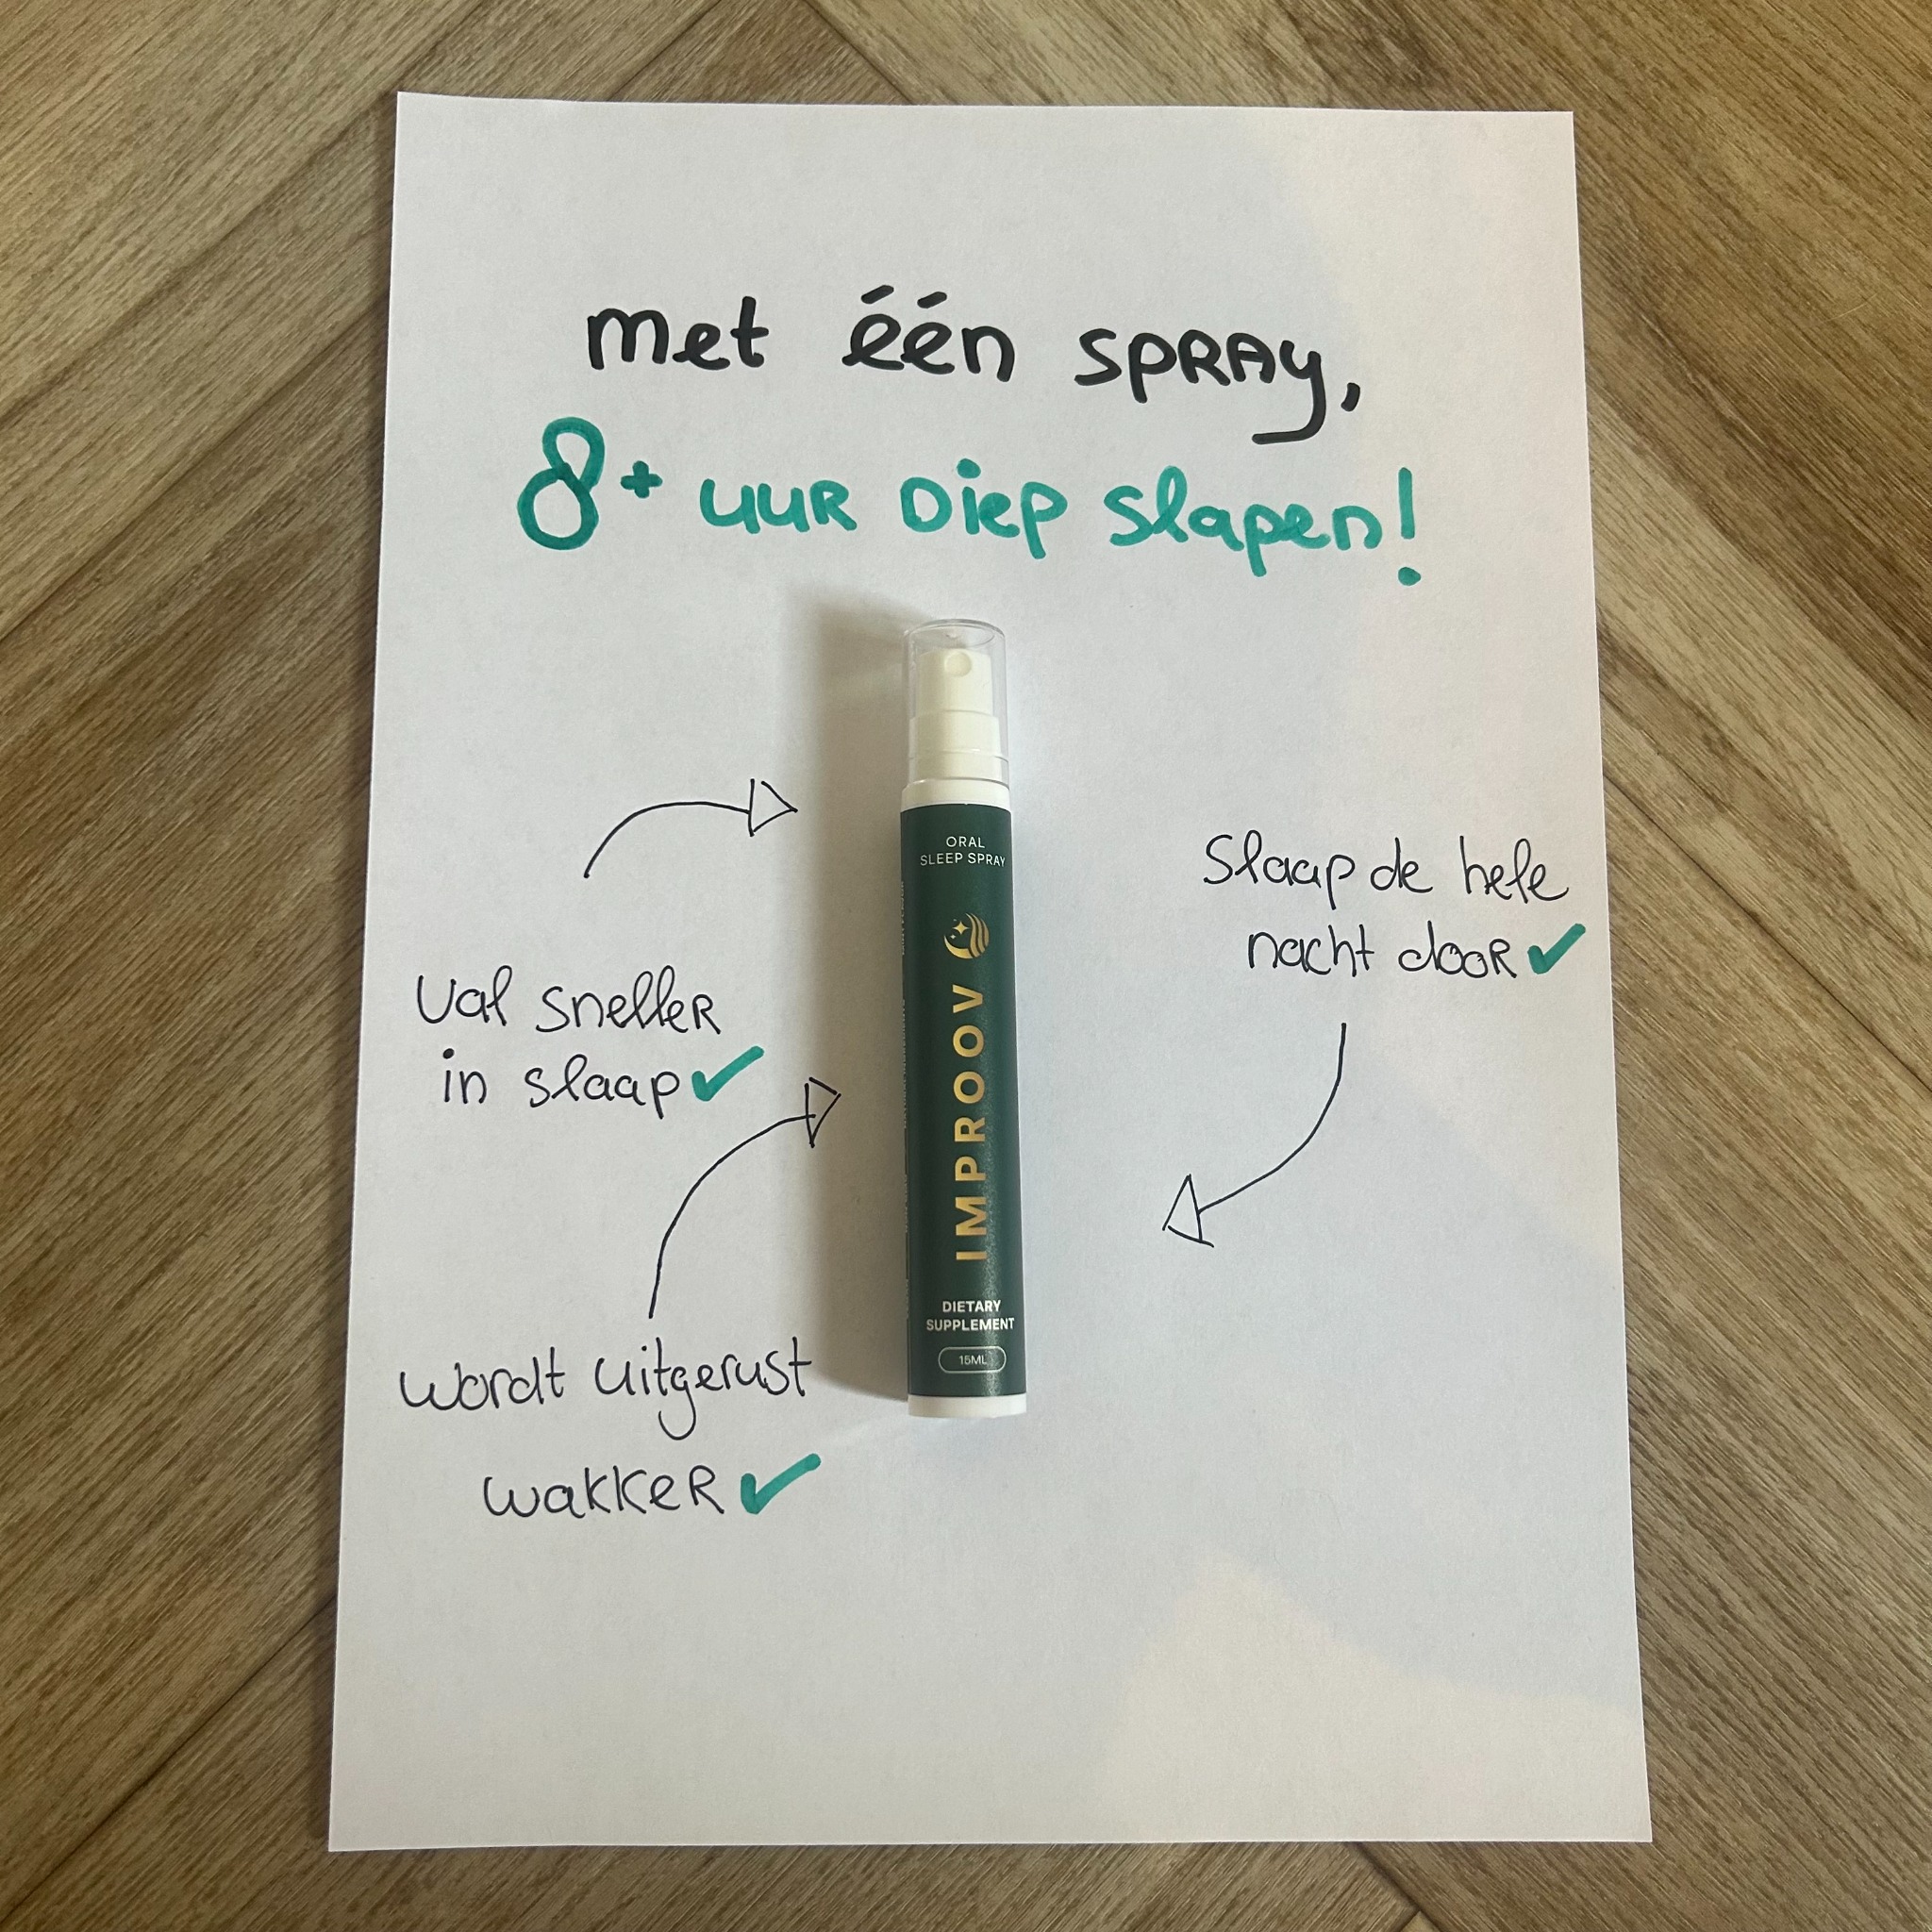 met één SPRAY,
8+ uur Diep slapen!
ORAL
SLEEP SPRAY
IMPROOV
DIETARY
SUPPLEMENT
15ML
Val sneller
in slaap
Slaap de hele
nacht door
wordt uitgerust
wakker